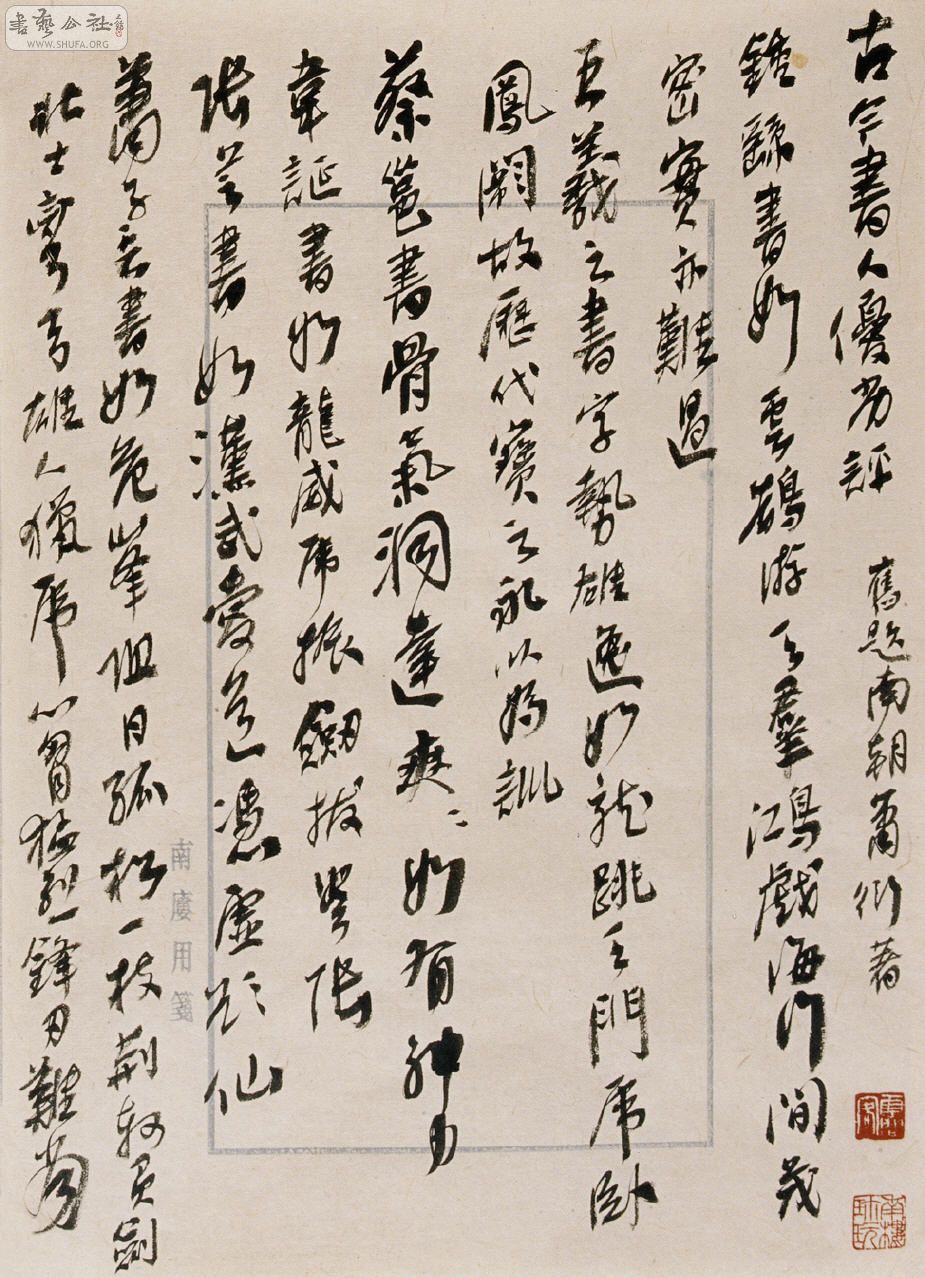 書藝公社
WWW.SHUFA.ORG
古今書人優劣評 舊題南朝蕭衍著
鍾繇書如雲鵠游天羣鴻戲海行間茂
密實亦難過
王羲之書字勢雄逸如龍跳天門虎卧
鳳闕故歷代寶之永以為訓
蔡邕書骨氣洞達爽〻如有神力
韋誕書如龍威虎振劔拔弩張
張芝書如漢武愛道憑虛欲仙
蕭子雲書如危峯阻日孤松一枝荊軻負劍
壯士彎弓雄人獵虎心胷猛烈鋒刃難當
南廔用箋